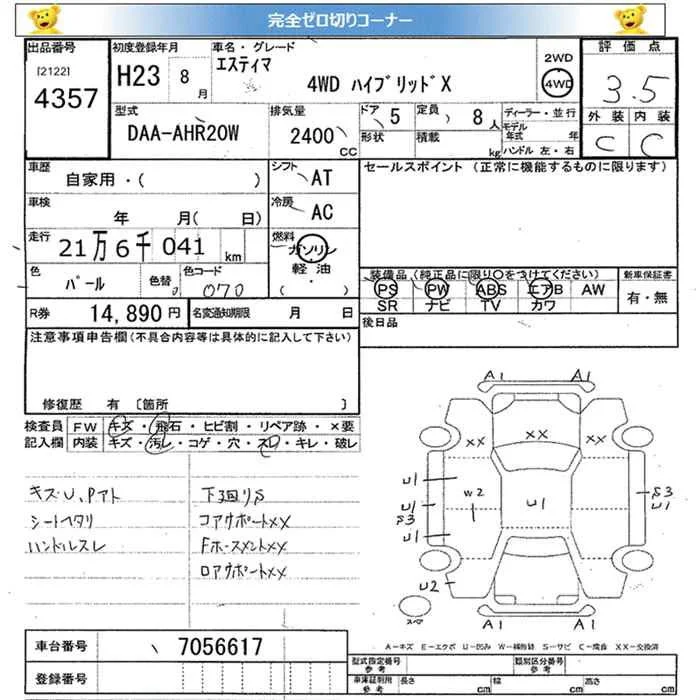 完全ゼロ切りコーナー
出品番号 初度登録年月 車名・グレード 2WD 評価点
[2122] エスティマ
4357 H23 8月 4WD ハイブリッドX 4WD 3.5
外装 内装
型式 排気量 ドア 5 定員 8人 ディーラー・並行 C C
DAA-AHR20W 2400 モデル年式 年
CC 形状 積載 kg ハンドル 左・右
車歴 シフト AT セールスポイント (正常に機能するものに限ります)
自家用・( )
車検 冷房 AC
年 月( 日)
走行 21万6千041km 燃料 ガソリン
軽油
( ・ )
色 パール 色替 色コード 070 装備品(純正品に限り○をつけてください) 新車保証書
PS PW ABS エアB AW 有・無
SR ナビ TV カワ
R券 14,890円 名変通知期限 月 日 後日品
注意事項申告欄(不具合内容等は具体的に記入して下さい)
修復歴 有 [箇所 ]
検査員 FW キズ・飛石・ヒビ割・リペア跡・×要
記入欄 内装 キズ・汚レ・コゲ・穴・スレ・キレ・破レ
A1 A1
XX XX XX
キズU、Pアト 下廻りS
シートヘタリ コアサポートXX
ハンドルスレ FホースメントXX
ロアサポートXX
U1 W2 U1 S3
U1 U1
S3
U1
U2
スペア
A1 A1
A-キズ E-エクボ U-凹み W-補修跡 S-サビ C-腐食 XX-交換済
車台番号 7056617
登録番号
型式指定番号 類別区分番号
参考 参考
車庫証明用 長さ cm 幅 cm 高さ cm
参考